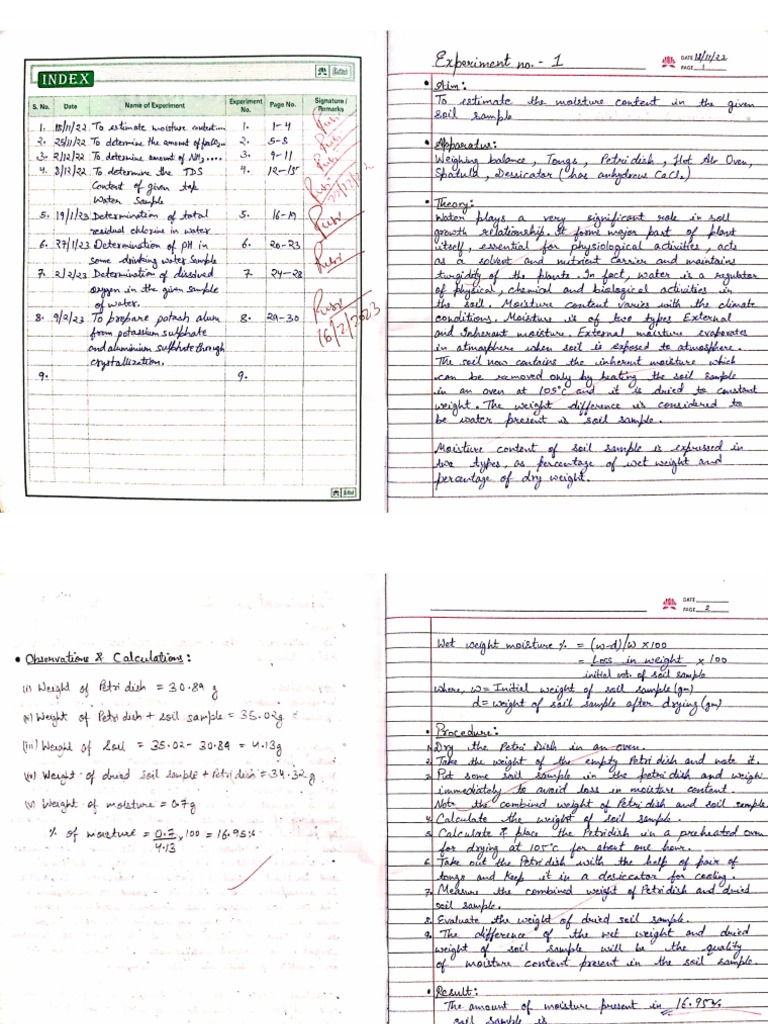 INDEX
S. No. Date Name of Experiment Experiment No. Page No. Signature / Remarks
1. 18/11/22 To estimate moisture content.... 1. 1-4
2. 25/11/22 To determine the amount of 2. 5-8
3. 2/12/22 To determine amount of NH3.... 3. 9-11
4. 8/12/22 To determine the TDS 4. 12-15
Content of given tap
Water Sample
5. 19/1/23 Determination of total 5. 16-19
residual chlorine in water
6. 27/1/23 Determination of pH in 6. 20-23
some drinking water sample
7. 2/2/23 Determination of dissolved 7. 24-28
oxygen in the given sample
of water.
8. 9/2/23 To prepare potash alum 8. 29-30
from potassium sulphate
and aluminium sulphate through
crystallization.
9. 9.
16/2/2023
Experiment no. - 1
DATE 18/11/22
PAGE 1
• Aim:
To estimate the moisture content in the given
soil sample
• Apparatus:
Weighing balance, Tongs, Petridish, Hot Air Oven,
Spatula, Dessicator (has anhydrous CaCl2)
• Theory:
Water plays a very significant role in soil
growth relationship. It forms major part of plant
itself, essential for physiological activities, acts
as a solvent and nutrient carrier and maintains
turgidity of the plants. In fact, water is a regulator
of physical, chemical and biological activities in
the soil. Moisture content varies with the climate
conditions. Moisture is of two types External
and Inherant moisture. External moisture evaporates
in atmosphere when soil is exposed to atmosphere.
The soil now contains the inherent moisture which
can be removed only by heating the soil sample
in an oven at 105°C and it is dried to constant
weight. The weight difference is considered to
be water present is soil sample.
Moisture content of soil sample is expressed in
two types, as percentage of wet weight and
percentage of dry weight.
• Observations & Calculations:
(i) Weight of Petri dish = 30.89 g
(ii) Weight of Petri dish + soil sample = 35.02g
(iii) Weight of Soil = 35.02 - 30.89 = 4.13g
(iv) Weight of dried soil sample + Petri dish = 34.32 g
(v) Weight of moisture = 0.7g
% of moisture = 0.7 x 100 = 16.95%
4.13
DATE
PAGE 2
Wet weight moisture % = (w-d)/w x100
= Loss in weight x 100
initial wt. of soil sample
where, w = Initial weight of soil sample (gm)
d = weight of soil sample after drying (gm)
• Procedure:
1. Dry the Petri Dish in an oven.
2. Take the weight of the empty Petri dish and note it.
3. Put some soil sample in the petridish and weigh
immediately to avoid loss in moisture content.
Note the combined weight of Petri dish and soil sample
4. Calculate the weight of soil sample.
5. Calculate & place the Petridish in a preheated oven
for drying at 105°C for about one hour.
6. Take out the Petri dish with the help of pair of
tongs and keep it in a desiccator for cooling.
7. Measure the combined weight of Petridish and dried
soil sample.
8. Evaluate the weight of dried soil sample.
9. The difference of the wet weight and dried
weight of soil sample will be the quality
of moisture content present in the soil sample.
• Result:
The amount of moisture present in 16.95%
soil sample is